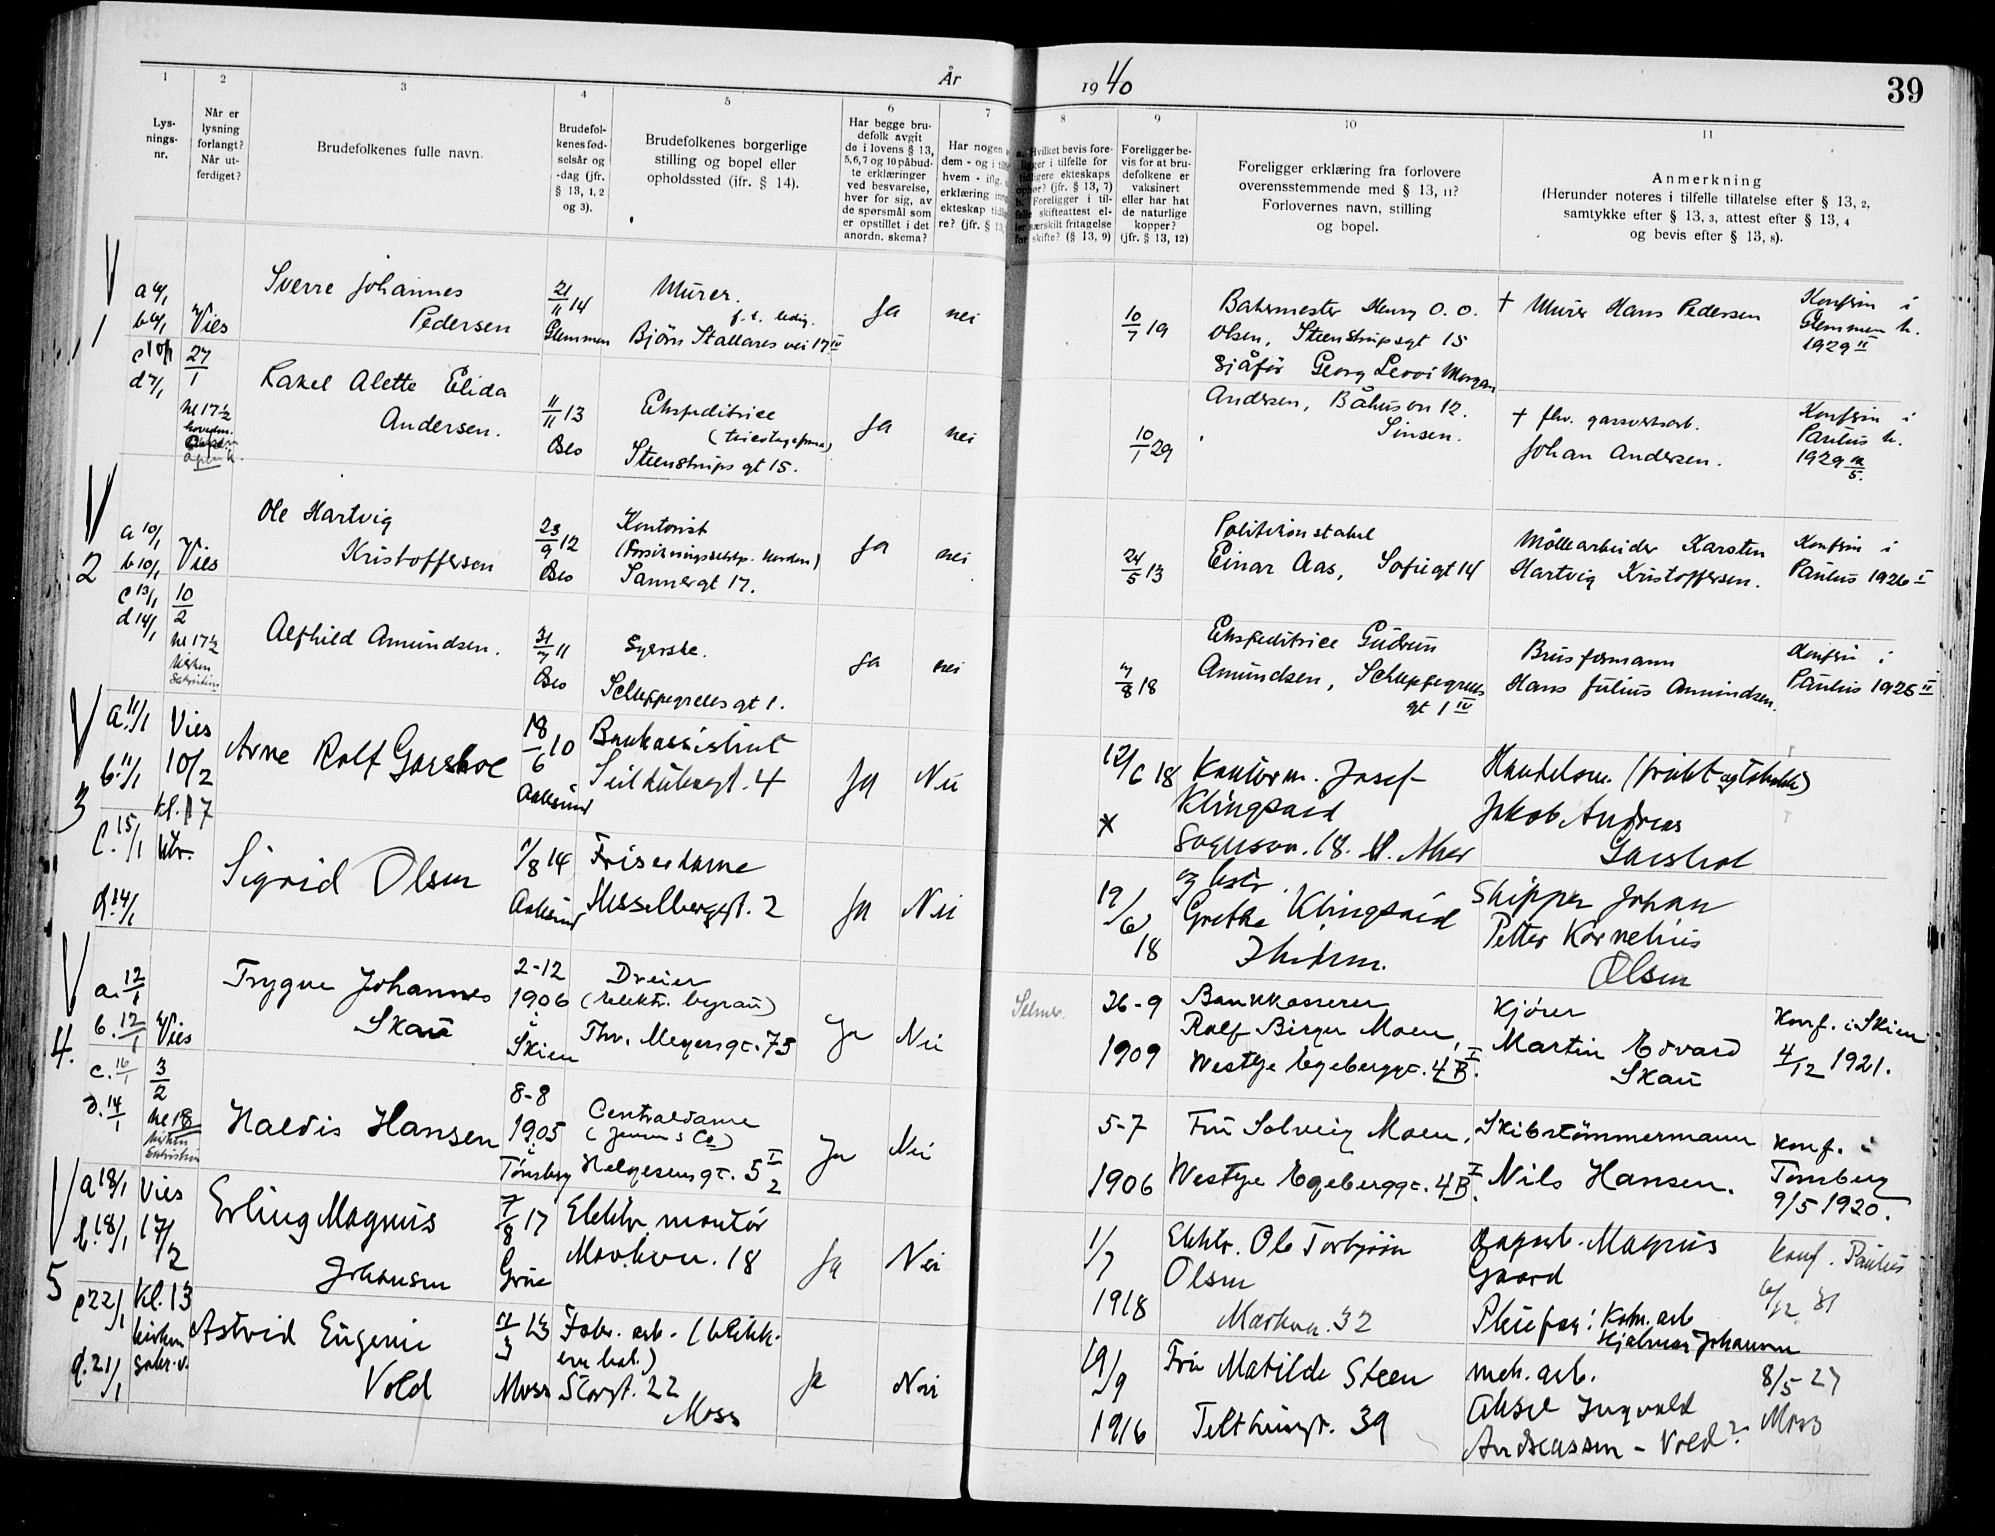 År 1940
39
1
Lys-
nings-
nr.
2
Når er
lysning
forlangt?
Når ut-
ferdiget?
3
Brudefolkenes fulle navn.
4
Brudefol-
kenes fød-
selsår og
-dag (jfr.
§ 13, 1, 2
og 3).
5
Brudefolkenes borgerlige
stilling og bopel eller
opholdssted (jfr. § 14).
6
Har begge bru-
defolk avgit
de i lovens § 13,
5, 6, 7 og 10 påbud-
te erklæringer
ved besvarelse,
hver for sig, av
de spørsmål som
er opstillet i det
anordn. skema?
7
Har nogen
dem - og i
hvem - iflg.
erklæring
ekteskap
re? (jfr. § 13,
8
Hvilket bevis fore-
ligger i tilfelle for
tidligere ekteskaps
ophør? (jfr. § 13, 7)
b. Foreligger i til-
felle skifteattest el-
ler særskilt fritagelse
for skifte? (§ 13, 9)
9
Foreligger be-
vis for at bru-
defolkene er
vaksinert
eller har hat
de naturlige
kopper?
(jfr. § 13, 12)
10
Foreligger erklæring fra forlovere
overensstemmende med § 13, 11?
Forlovernes navn, stilling
og bopel.
11
Anmerkning
(Herunder noteres i tilfelle tillatelse efter § 13, 2,
samtykke efter § 13, 3, attest efter § 13, 4
og bevis efter § 13, 8).
1
Vies
27/1
Sverre Johannes
Pedersen
21/11 14
Glemmen
Murer.
f. t. ledig.
Bjørn Stallares vei 17 IV
Ja
nei
10/7 19
Bakermester Henry O. O.
Olsen, Steenstrupsgt 15
Sjåfør Georg Levoi Morgan
Andersen, Båhusvn 12.
Sinsen.
† Murer Hans Pedersen
Konfirm i
Glemmen k.
1929 II
Rakel Alette Elida
Andersen.
11/11 13
Oslo
Ekspeditrice
Steenstrups gt 15.
Ja
nei
10/1 29
† fhv. gassverksarb.
Johan Andersen.
Konfirm i
Paulus k.
1929
2
a 10/1
b 10/1
c 13/1
d 14/1
Vies
10/2
kl 17½
kirken
Ole Hartvig
Kristoffersen
23/9 12
Oslo
Kontorist
(Forsikringsselskp. Norden)
Sannergt 17.
Ja
nei
24/5 13
Politikonstabel
Einar Aas, Sofiegt 14
Møllearbeider Karsten
Hartvig Kristoffersen.
Konfirm i
Paulus 1926 I
Alfhild Amundsen.
31/7 11
Oslo
Syerske.
Schleppegrells gt 1.
Ja
nei
7/8 18
Ekspeditrice Gudrun
Amundsen, Schleppegrells
gt 1 IV
Brusformann
Hans Julius Amundsen.
Konfirm i
Paulus 1925 II
3
a. 11/1
b. 11/1
c. 15/1
d. 14/1
Vies
10/2
kl. 17
Arne Rolf Garshol
18/6 10
Aalesund
Bankassistent
Seilduksgt. 4
Ja
Nei
12/6 18
x
Kontorm. Josef
Klingsheid
Sognsvn. 18.
og hustr.
Grethe Klingsheid
Handelsm. (frukt og tobakk)
Jakob Andreas
Garshol
Sigrid Olsen
1/8 14
Aalesund
Friserdame
Hesselbergsgt. 2
Ja
Nei
12/6
18
Skipper Johan
Petter Kornelius
Olsen
4.
a. 12/1
b. 12/1
c. 16/1
d. 14/1
Vies
3/2
kl 18
kirken
Trygve Johannes
Skau
2-12
1906
i
Skien
Dreier
(elektr. byrau)
Thv. Meyersgt. 73
Ja
Nei
26-9
1909
Bankkasserer
Rolf Birger Moen,
Westye Egebergsgt. 4B I.
Kjører
Martin Edvard
Skau
Konf. i Skien
4/12 1921.
Haldis Hansen
8-8
1905
i
Tønsberg
Centraldame
(Jensen & Co)
Helgesensgt. 5 I/2
Ja
Nei
5-7
1906
Fru Solveig Moen,
Westye Egebergsgt. 4B I.
Skibstømmermann
Nils Hansen.
Konf. i
Tønsberg
9/5 1920.
5
a 18/1
b. 18/1
c 22/1
d. 21/1
Vies
17/2
kl. 13
kirken
Erling Magnus
Johansen
7/8 17
Grue
Elektr. montør
Markvn. 18
Ja
Nei
1/7
1918
Elektr. Ole Torbjørn
Olsen
Markvn. 32
Dagarb. Magnus
Gaard
Pleiefar: Kom. arb
Hjalmar Johansen
Konf. Paulus
6/12 31
Astrid Eugenie
Vold
11/3 13
Moss
Fabr. arb. (blikk-
Storgt. 22
Moss
Ja
Nei
19/9
1916
Fru Matilde Steen
Telthusgt. 39
mek. arb.
Aksel Ingvald
Andreassen - Vold?
8/5 27
Moss